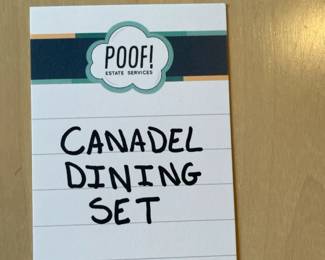 POOF!
ESTATE SERVICES
CANADEL
DINING
SET